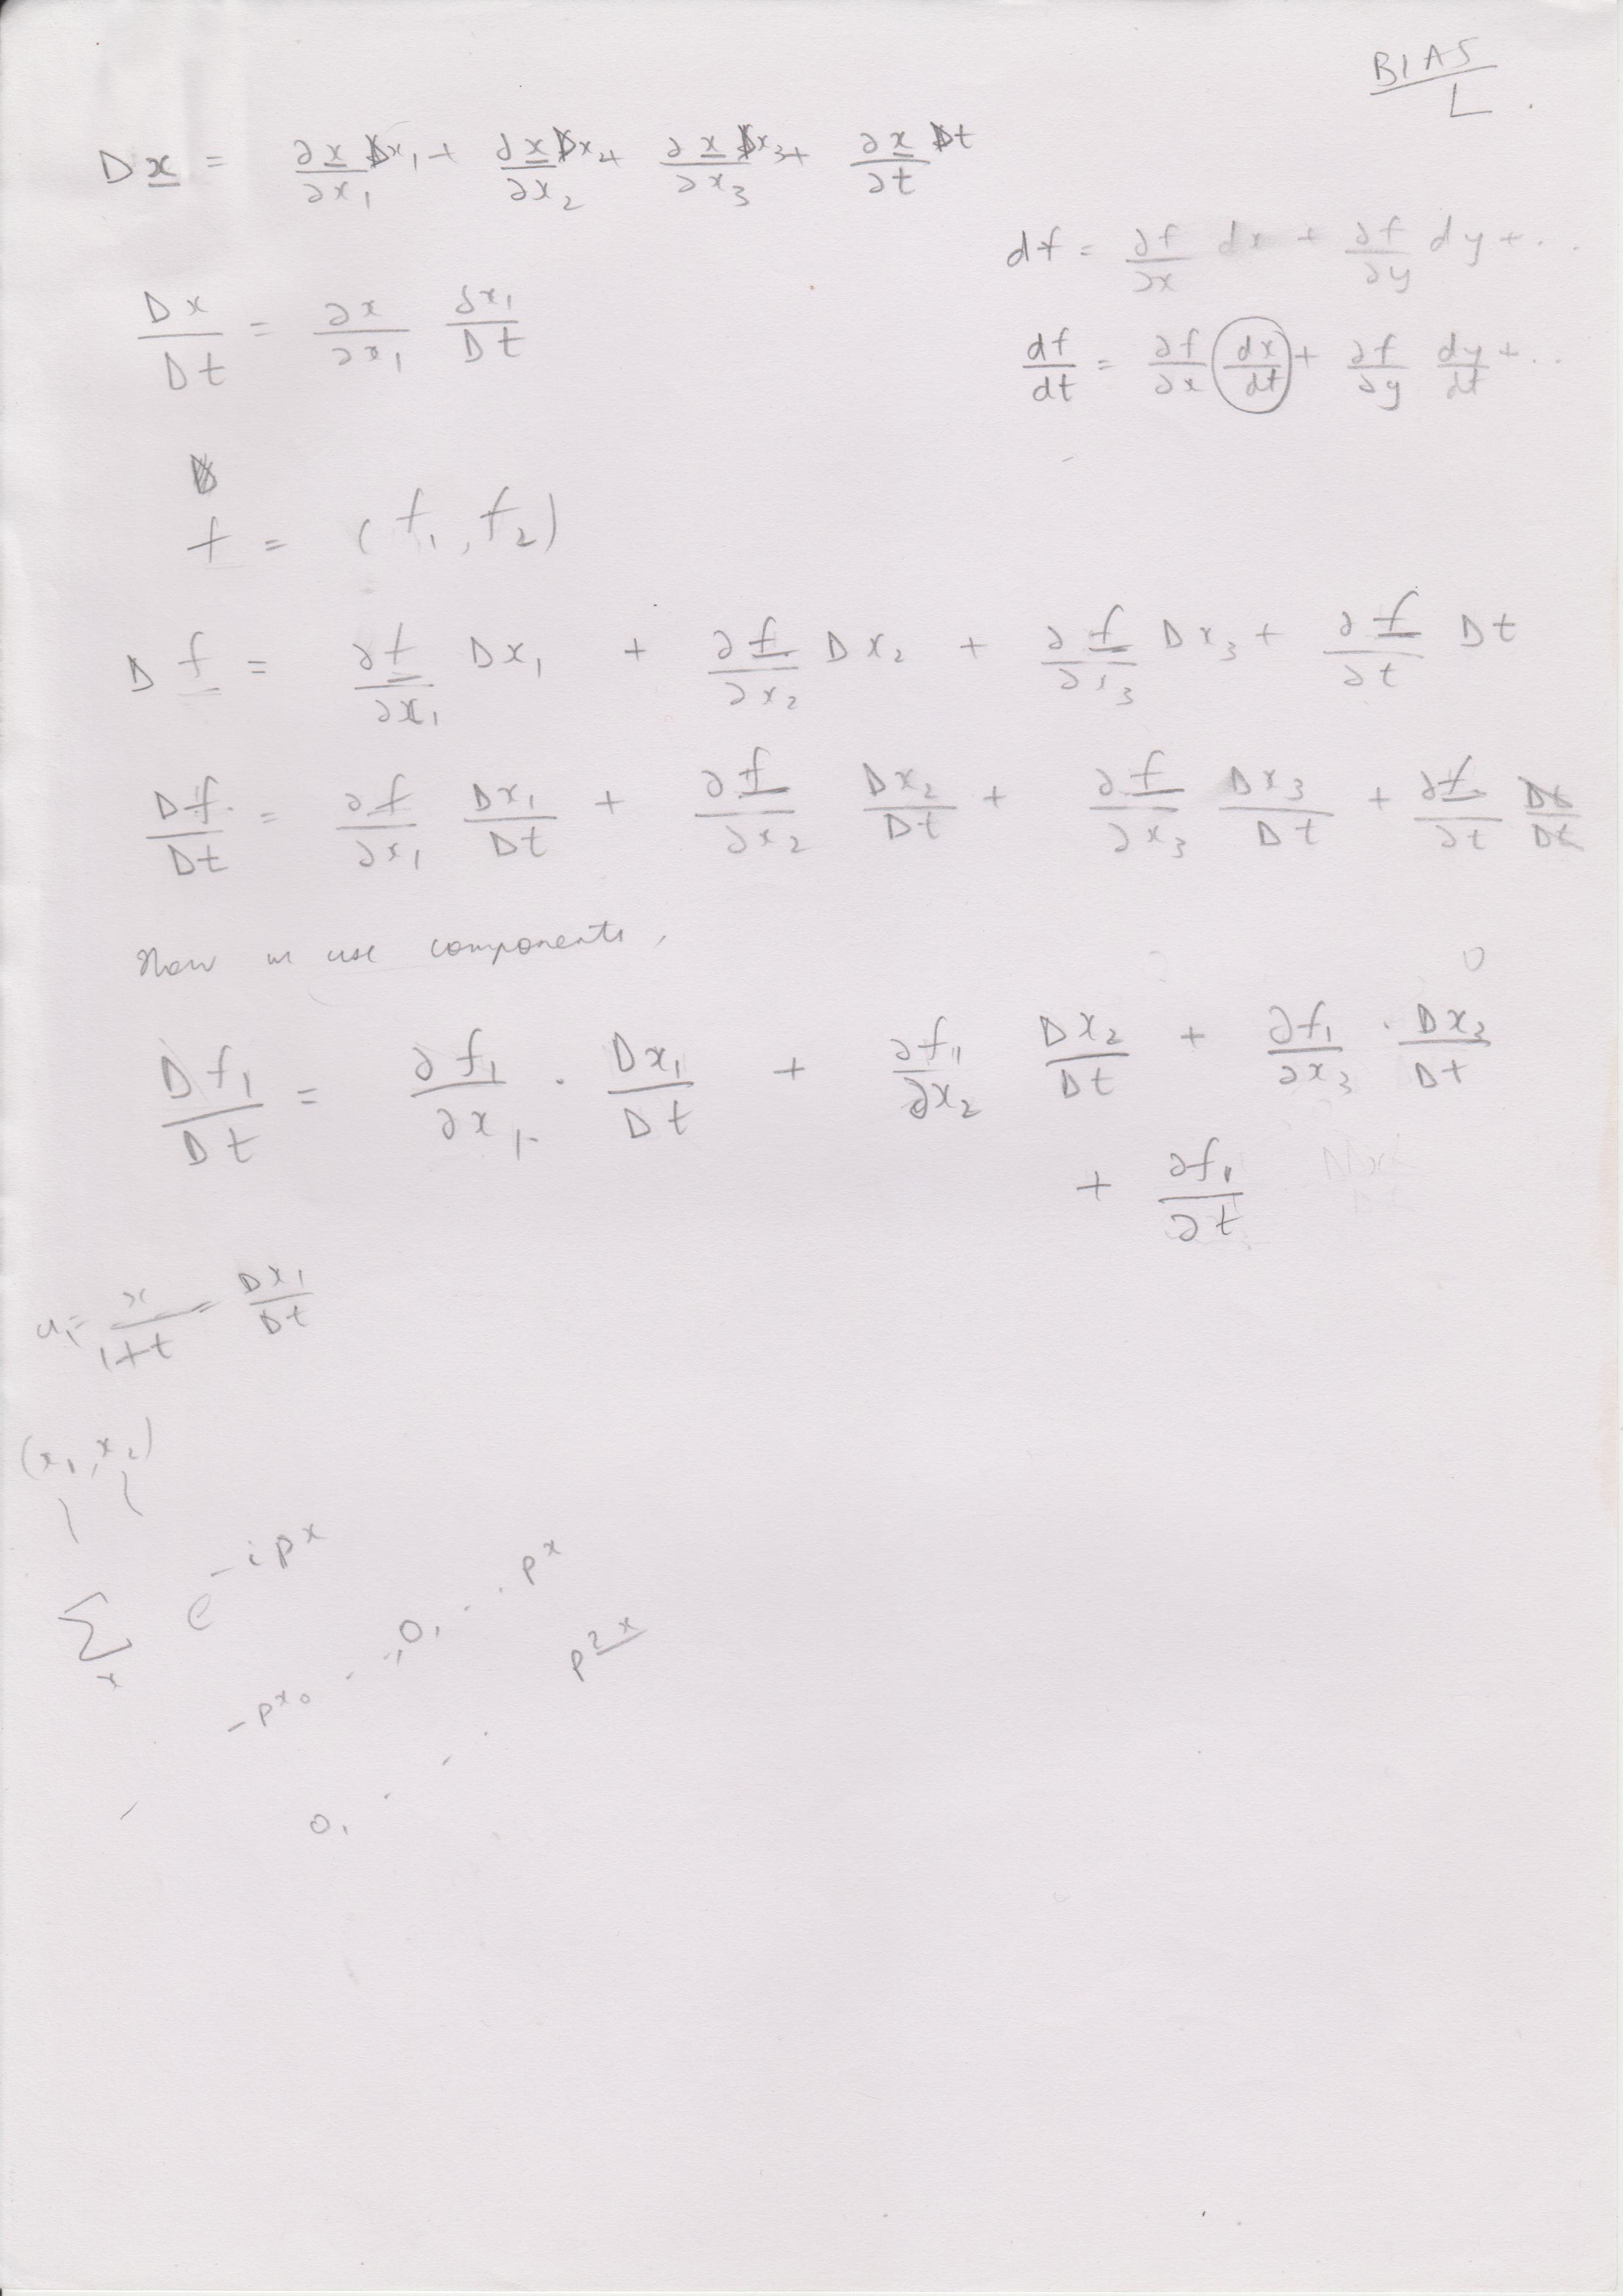 BIAS
L
D x = ∂x/∂x₁ Dx₁ + ∂x/∂x₂ Dx₂ + ∂x/∂x₃ Dx₃ + ∂x/∂t Dt
df = ∂f/∂x dx + ∂f/∂y dy + ...
Dx/Dt = ∂x/∂x₁ ∂x₁/Dt
df/dt = ∂f/∂x dx/dt + ∂f/∂y dy/dt + ...
f = (f₁, f₂)
D f = ∂f/∂x₁ Dx₁ + ∂f/∂x₂ Dx₂ + ∂f/∂x₃ Dx₃ + ∂f/∂t Dt
Df/Dt = ∂f/∂x₁ Dx₁/Dt + ∂f/∂x₂ Dx₂/Dt + ∂f/∂x₃ Dx₃/Dt + ∂f/∂t Dt/Dt
Now we use components,
0
Df₁/Dt = ∂f₁/∂x₁ · Dx₁/Dt + ∂f₁/∂x₂ Dx₂/Dt + ∂f₁/∂x₃ · Dx₃/Dt
+ ∂f₁/∂t
u₁ = x/1+t = Dx₁/Dt
(x₁, x₂)
∑ₓ e^(-ipx)
-pˣ0 ... , 0, ... pˣ
p^(2x)
0, ...